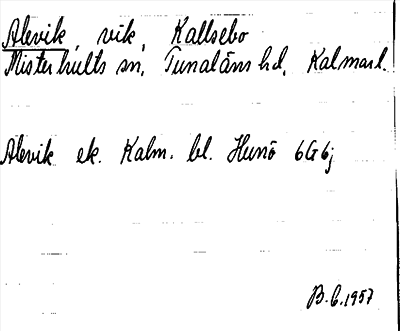 Alevik, vik, Kallsebo
Misterhults sn, Tunaläns hd, Kalmarl.
Alevik ek. Kalm. bl. Hunö 6G6j
B.C. 1957